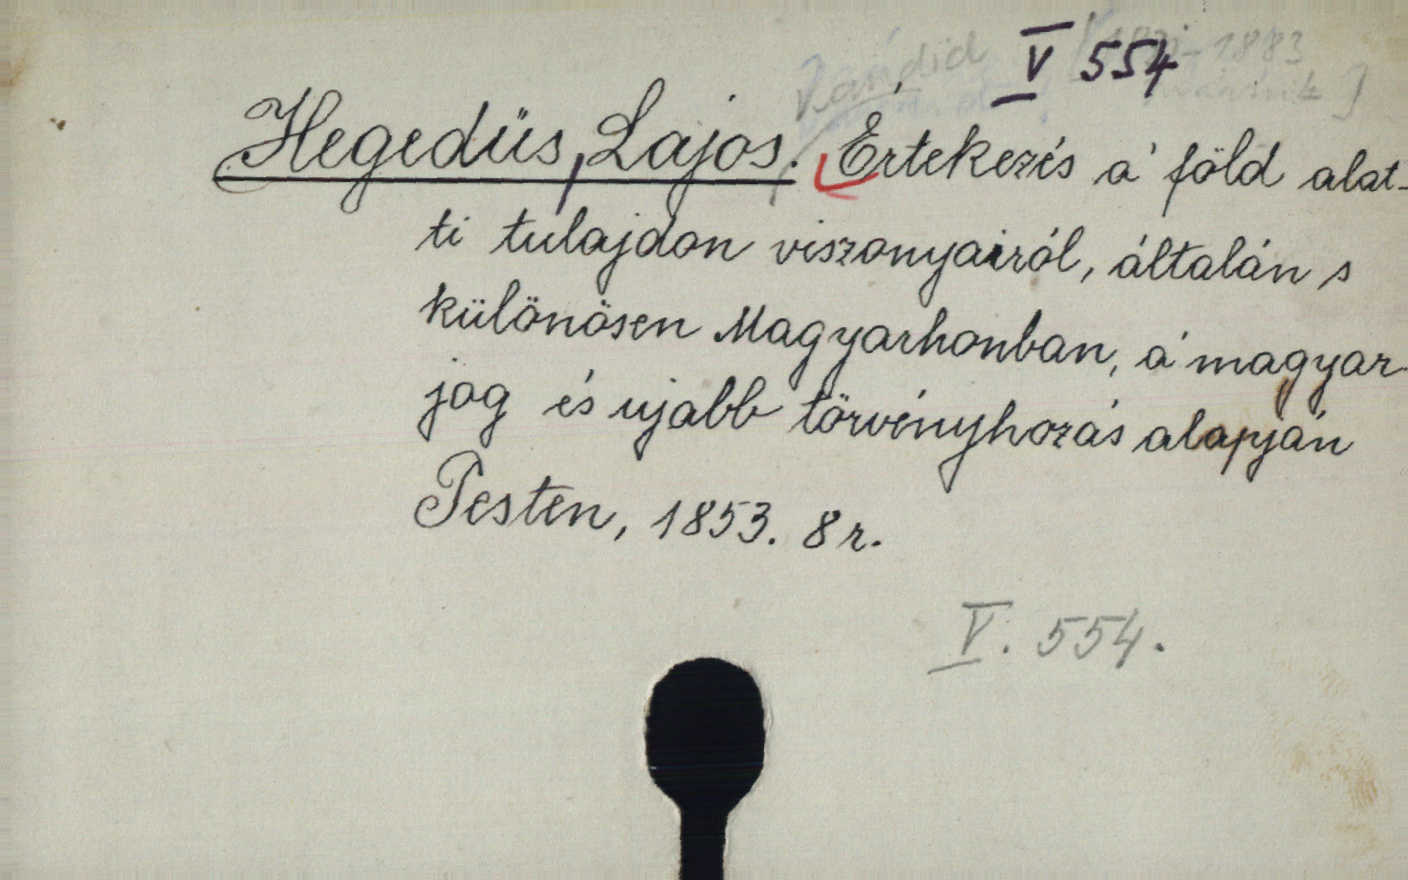 V 554
1883
Hegedüs, Lajos. Értekezés a' föld alat-
ti tulajdon viszonyairól, általán s
különösen Magyarhonban, a' magyar
jog és ujabb törvényhozás alapján
Pesten, 1853. 8r.
V. 554.